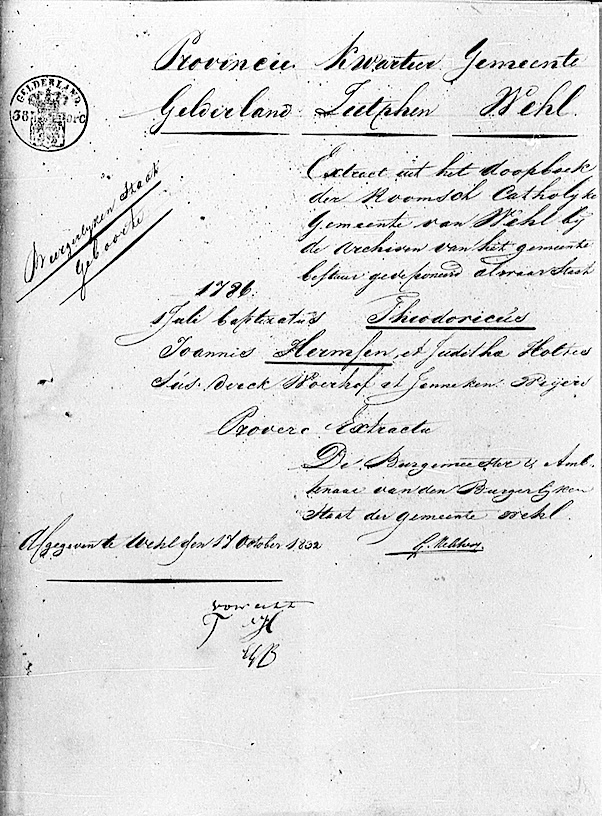 Provincie Kwartier Gemeente
Gelderland Zutphen Wehl
GELDERLAND
38
Burgerlyken Staat
Geboorte
Extract uit het doopboek
der Roomsch Catholyke
Gemeente van Wehl bij
de Archiven van het gemeente
bestuur gedeponeerd alwaar staat
1786.
1 Juli baptizatus Theodoricus
Joannis Hermsen et Juditha Holtes
Sus. Derck Woerhof et Jenneken Meijers
Pro vero Extractu
De Burgemeester & Amb-
tenaar van den Burgerlyken
Staat der gemeente Wehl.
Afgegeven te Wehl den 17 October 1832
voor acht
T H